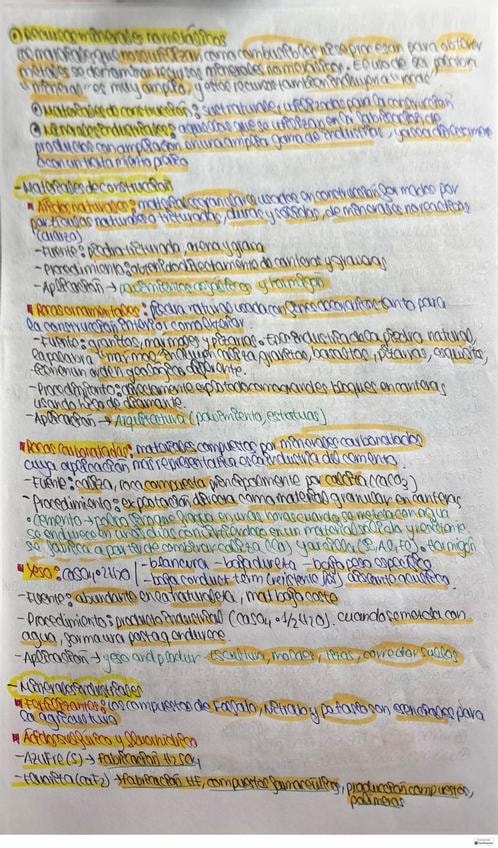 Recursos minerales no metálicos
los materiales que no se utilizan como combustibles ni se procesan para obtener
metales se denominan recursos minerales no metálicos. El uso de la palabra
"mineral" es muy amplio y estos recursos también incluyen a rocas.
Materiales de construcción: sust naturales utilizadas para la construcción
Minerales industriales: aquellos que se utilizan en la fabricación de
productos con aplicación en una amplia gama de industrias, ya sea directamente
o con un tratamiento previo
- Materiales de construcción
Áridos naturales: materiales granulares usados en construcción formados por
partículas naturales o trituradas, duras y sólidas, de minerales no metálicos
(caliza)
- Fuente: piedra triturada, arena y grava
- Procedimiento: obtenidos directamente de canteras y graveras
- Aplicación →
Rocas ornamentales: piedra natural usada con fines decorativos tanto para
la construcción interior como exterior
- Fuente: granitos, mármoles y pizarras. En la industria de la piedra natural,
la palabra "mármol" incluyen caliza, granitos, basaltos, pizarras, esquistos,
tienen un origen geológico diferente.
- Procedimiento: directamente explotado como grandes bloques en canteras
usando hilo de diamante.
- Aplicación → Arquitectura (pavimento, estatuas)
Rocas carbonatadas: materiales compuestos por minerales carbonatados
cuya aplicación más representativa es la industria del cemento
- Fuente: caliza, roca compuesta principalmente por calcita (CaCO3)
- Procedimiento: explotación directa como material granular en canteras
• Cemento → polvo fino que fragua en unas horas cuando se mezcla con agua
se endurece en unos días convirtiéndolo en un material sólido y resistente
se fabrica a partir de combinar caliza (Ca) y arcilla (Si, Al, Fe). • Hormigón
Yeso: CaSO4·2H2O - blancura - baja dureza - bajo peso específico
- baja conduct term
- Fuente: abundante en la naturaleza, mat bajo coste
- Procedimiento: producto industrial (CaSO4·1/2H2O). cuando se mezcla con
agua, forma una pasta y endurece.
- Aplicación → yeso Escultura, moldes, tizas, corrector suelos
- Minerales industriales
Fertilizantes: los compuestos de Fosfato, Nitrato y potasio son esenciales para
la agricultura
Ácido sulfúrico y fluorhídrico
- Azufre (S) → Fabricación H2SO4
- Fluorita (CaF2) → Fabricación HF, compuestos farmacéuticos, producción compuestos,
polímeros